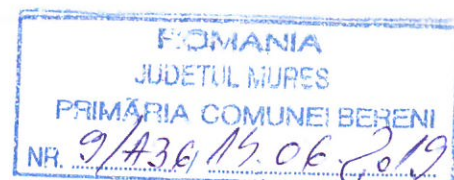 ROMANIA
JUDETUL MURES
PRIMĂRIA COMUNEI BERENI
NR. 9/A36/ .06.2019